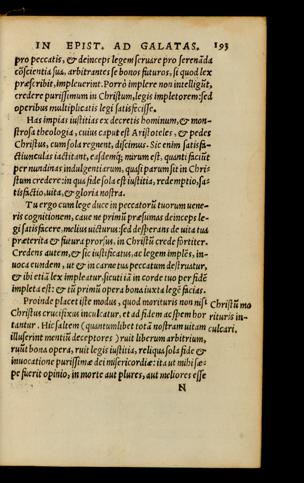 IN EPIST. AD GALATAS. 193
pro peccatis, & deinceps legem seruare pro serenãda
cõscientia sua, arbitrantes se bonos futuros, si quod lex
præscribit, impleuerint. Porrò implere non intelligũt,
credere purissimum in Christum, legis impletorem: sed
operibus multiplicatis legi satisfecisse.
Has impias iustitias ex decretis hominum, & mon-
strosa theologia, cuius caput est Aristoteles, & pedes
Christus, cum sola regnent, discimus. Sic enim satisfa-
ctiunculas iactitant, easdemq; mirum est, quanti faciũt
per nundinas indulgentiarum, quasi parum sit in Chris
stum credere: in qua fide sola est iustitia, redemptio, sa-
tisfactio, uita, & gloria nostra.
Tu ergo cum lege duce in peccatorũ tuorum uene-
ris cognitionem, caue ne primũ præsumas deinceps le-
gi satisfacere, melius uicturus: sed desperans de uita tua
præterita & futura prorsus, in Christũ crede fortiter.
Credens autem, & sic iustificatus, ac legem implẽs, in-
uoca eundem, ut & in carne tua peccatum destruatur,
& ibi etiã lex impleatur, sicuti iã in corde tuo per fidẽ
impleta est: & tũ primũ opera bona iuxta legẽ facias.
Proinde placet iste modus, quod morituris non nisi
Christus crucifixus inculcatur, et ad fidem ac spem hor
tantur. Hic saltem (quantumlibet totã nostram uitam
illuserint mentiũ deceptores) ruit liberum arbitrium,
ruũt bona opera, ruit legis iustitia, reliqua sola fide &
inuocatione purissimæ dei misericordiæ: ita ut mihi sæ-
pe fuerit opinio, in morte aut plures, aut meliores esse
Christũ mo
rituris in-
culcari.
N